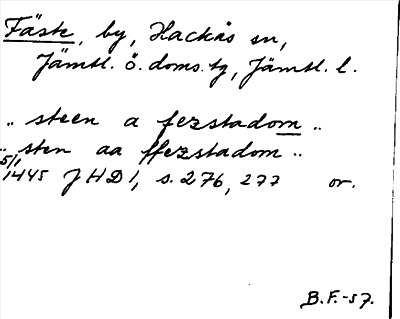 Fäste, by, Hackås sn,
Jämtl. ö. doms. tg, Jämtl. l.
.. steen a fezstadom ..
.. sten aa ffezstadom ..
5/1 1445 JHD 1, s. 276, 277 or.
B.F.-57.